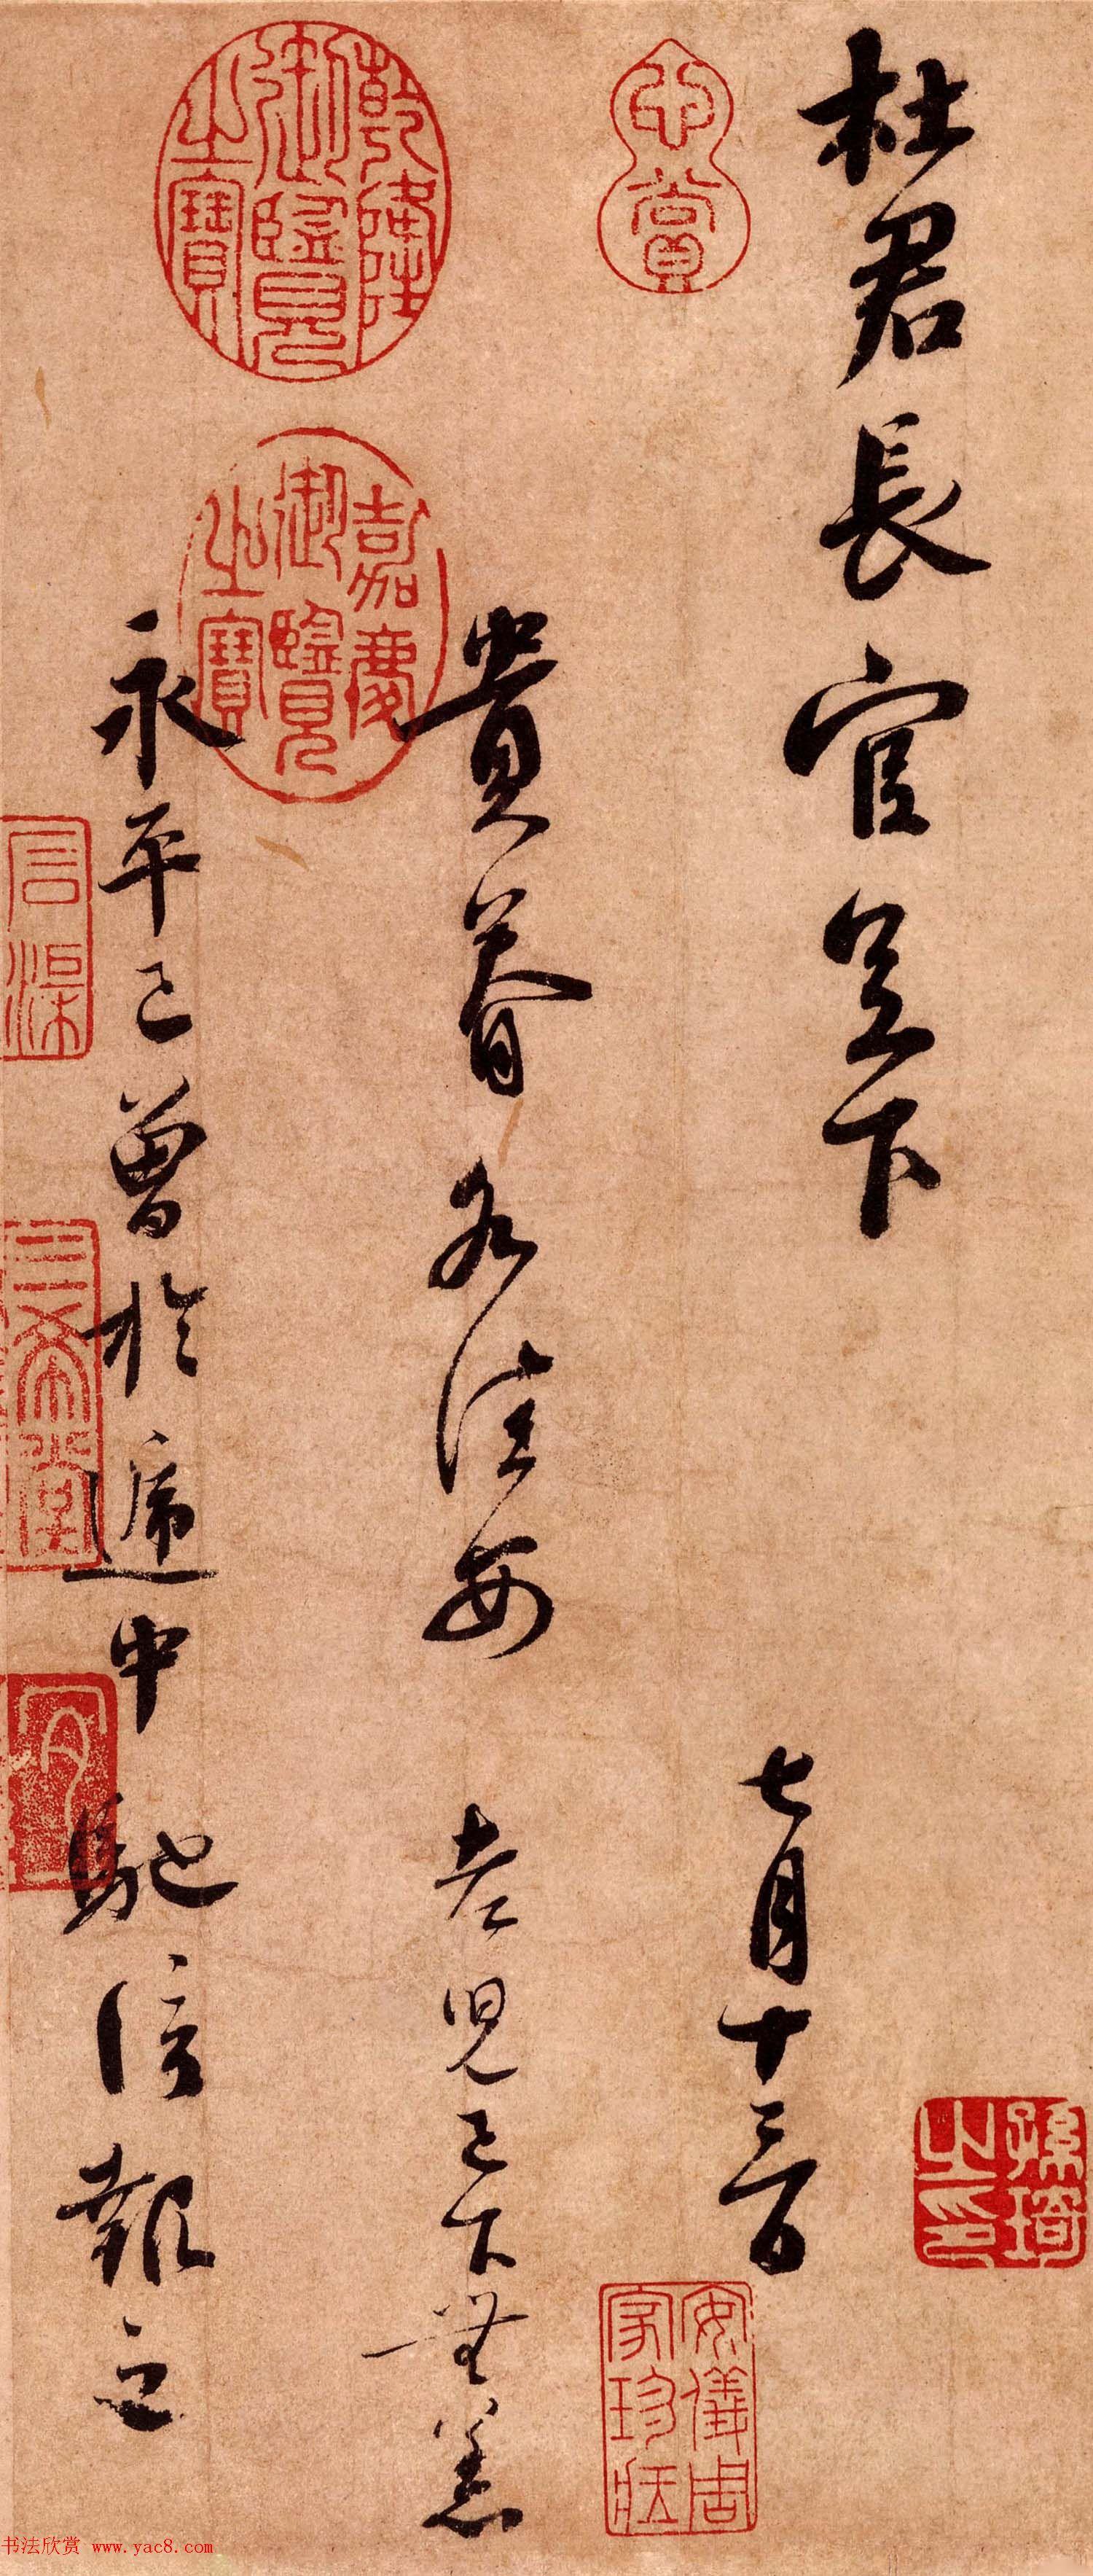 杜君長官足下
七月十三日
貴眷各佳安 老兒已下無恙
永平已曾於遞中馳信報之
心賞
乾隆御覽之寶
嘉慶御覽之寶
石渠
三希堂
孫琦之印
安儀周家珍藏
书法欣赏 www.yac8.com